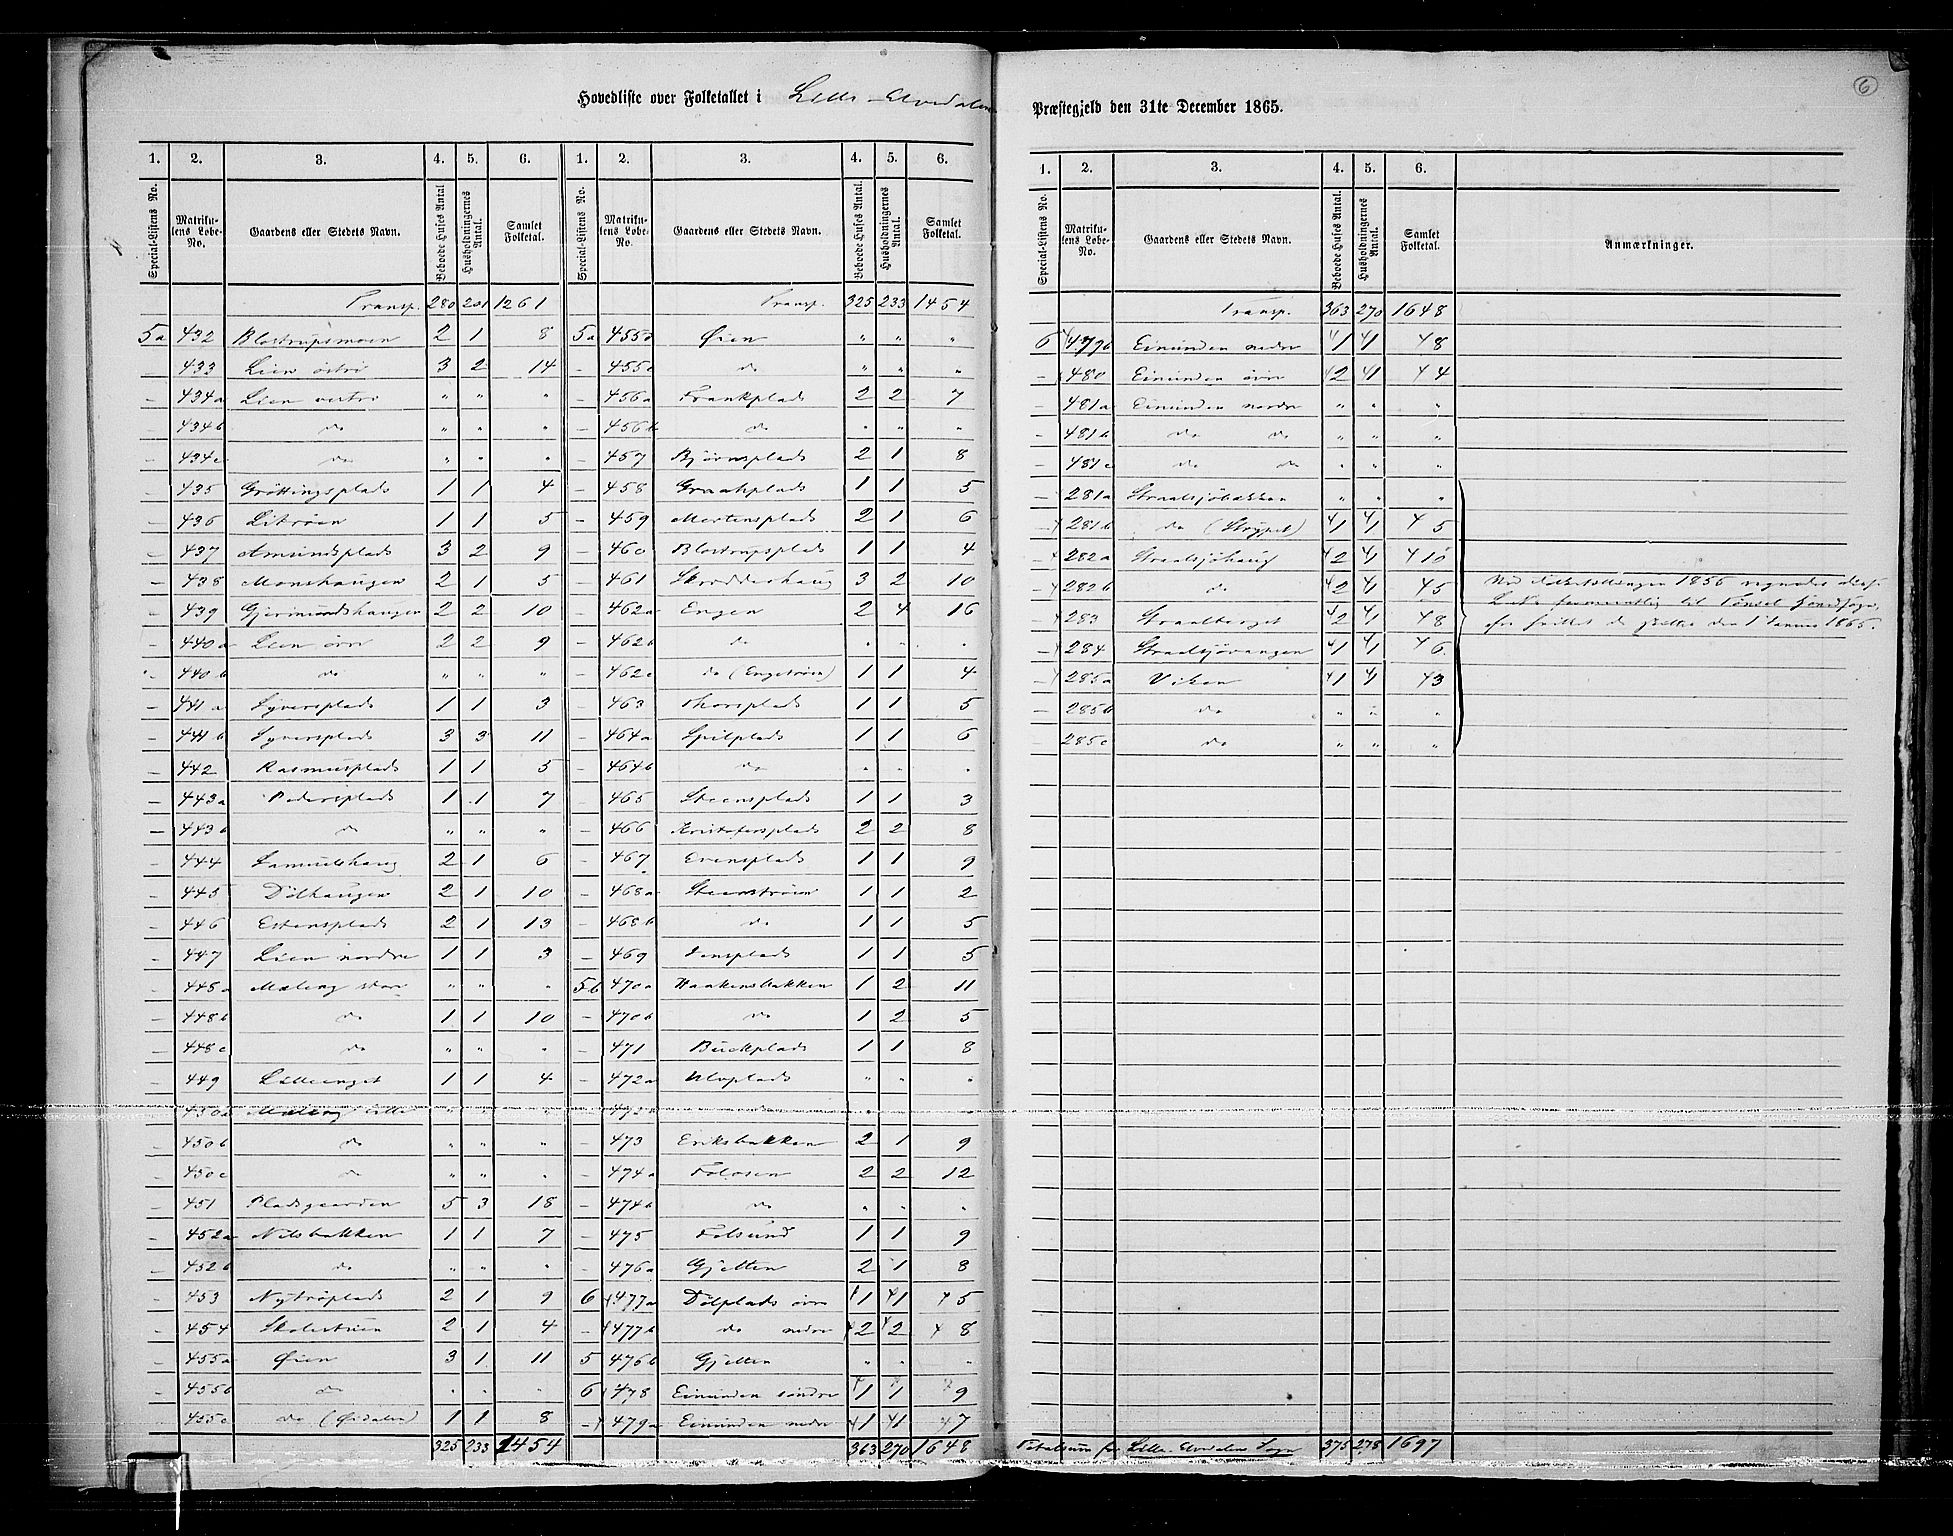 6
Hovedliste over Folketallet i Lille-Elvedalen Præstegjeld den 31te December 1865.
1. 2. 3. 4. 5. 6. 1. 2. 3. 4. 5. 6.
Special-Listens No. Matrikulens Løbe-No. Gaardens eller Stedets Navn. Beboede Huses Antal Husholdningernes Antal. Samlet Folketal. Special-Listens No. Matrikulens Løbe-No. Gaardens eller Stedets Navn. Beboede Huses Antal Husholdningernes Antal. Samlet Folketal.
Transp. 280 201 1261 Transp. 325 233 1454
5a 432 Blostrupsmoen 2 1 8 5a 455d Øien " " "
433 Lien østre 3 2 14 – 455e do " " "
– 434a Lien vestre " " " – 456a Frankplads 2 2 7
– 434b do " " " – 456b do " " "
– 434c do " " " – 457 Bjørnsplads 2 1 8
– 435 Grøttingsplads 1 1 4 – 458 Graahplads 1 1 5
– 436 Litrøen 1 1 5 – 459 Mortensplads 2 1 6
– 437 Amundsplads 3 2 9 – 460 Blostrupsplads 1 1 4
– 438 Monshaugen 2 1 5 – 461 Skrædderhaug 3 2 10
– 439 Gjermundshaugen 2 2 10 – 462a Engen 2 4 16
– 440a Lien øvre 2 2 9 – 462b do " " "
– 440b do " " " – 462c do (Engetrøen) 1 1 4
– 441a Syversplads 1 1 3 – 463 Thorsplads 1 1 5
– 441b Syversplads 3 3 11 – 464a Spilplads 1 1 6
– 442 Rasmusplads 1 1 5 – 464b do " " "
– 443a Pedersplads 1 1 7 – 465 Steensplads 1 1 3
– 443b do " " " – 466 Kristofersplads 2 2 8
– 444 Samuelshaug 2 1 6 – 467 Evensplads 1 1 9
– 445 Dølhaugen 2 1 10 – 468a Steenstrøen 1 1 2
– 446 Estensplads 2 1 13 – 468b do 1 1 5
– 447 Lien nordre 1 1 3 – 469 Jensplads 1 1 5
– 448a Mæleng store " " " 5b 470a Haakensbakken 1 2 11
– 448b do 1 1 10 – 470b do 1 2 5
– 448c do " " " – 471 Buckplads 1 1 8
– 449 Lilleenget 1 1 4 – 472a Ulvplads " " "
– 450a Mæleng lille " " " – 472b " " "
– 450b do " " " – 473 Eriksbakken 2 1 9
– 450c do " " " – 474a Folosen 2 2 12
– 451 Pladsgaarden 5 3 18 – 474b do " " "
– 452a Nilsbakken 1 1 7 – 475 Folsund 1 1 9
– 452b do " " " – 476a Gjelten 2 1 8
– 453 Nytrøplads 2 1 9 6 477a Dølplads øvre 1 1 5
– 454 Skolestuen 2 1 4 – 477b do nedre 2 2 8
– 455a Øien 3 1 11 5 476b Gjelten " " "
– 455b do " " " 6 478 Einunden søndre 1 1 9
– 455c do (Øidalen) 1 1 8 – 479a Einunden nedre 1 1 7
325 233 1454 363 270 1648
1. 2. 3. 4. 5. 6.
Special-Listens No. Matrikulens Løbe-No. Gaardens eller Stedets Navn. Beboede Huses Antal. Husholdningernes Antal. Samlet Folketal. Anmærkninger.
Transp. 363 270 1648
6 479b Einunden nedre 1 1 8
– 480 Einunden øvre 2 1 4
– 481a Einunden nordre " " "
– 481b do do " " "
– 481c do do " " "
– 281a Straalsjøbakken " " "
– 281b do 1 1 5
– 282a Straalsjøhaug 2 1 10
– 282b do 2 1 5
– 283 Straalberget 2 1 8
– 284 Straalsjøvangen 1 1 6
– 285a Viken 1 1 3
– 285b do " " "
– 285c do " " "
Ved Folketællingen 1855 regnedes disse
til Tønset
1 Januar 1865.
Totalsum for Lille-Elvedalens Sogn 375 278 1697